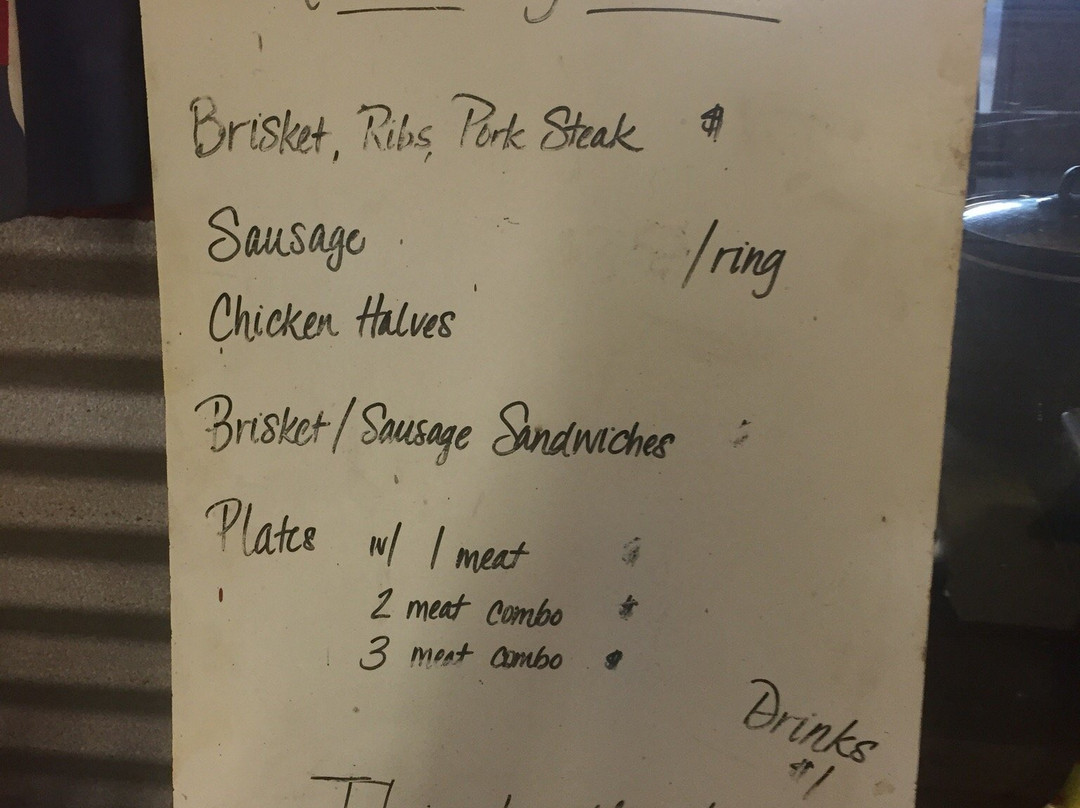 Brisket, Ribs, Pork Steak $
Sausage /ring
Chicken Halves
Brisket/Sausage Sandwiches
Plates w/ 1 meat
2 meat combo
3 meat combo
Drinks
$1